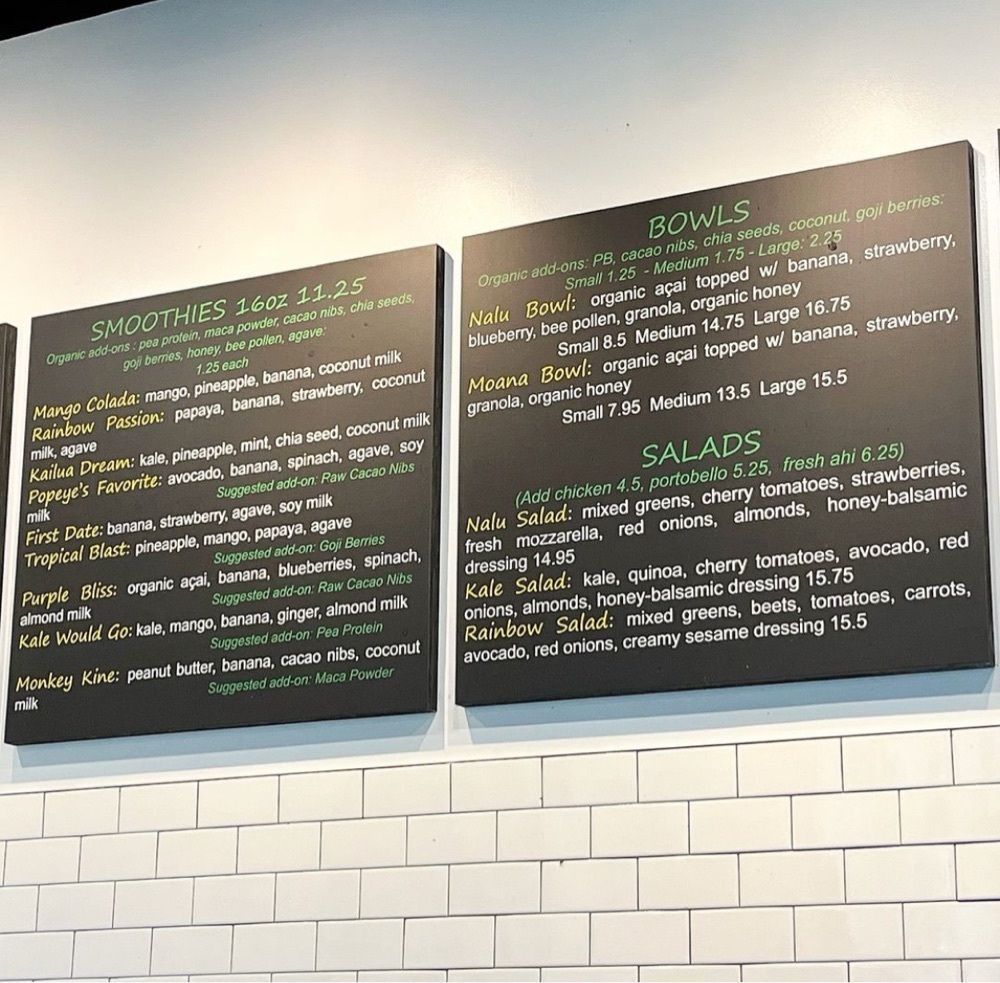 SMOOTHIES 16oz 11.25
Organic add-ons : pea protein, maca powder, cacao nibs, chia seeds,
goji berries, honey, bee pollen, agave:
1.25 each
Mango Colada: mango, pineapple, banana, coconut milk
Rainbow Passion: papaya, banana, strawberry, coconut
milk, agave
Kailua Dream: kale, pineapple, mint, chia seed, coconut milk
Popeye's Favorite: avocado, banana, spinach, agave, soy
milk
Suggested add-on: Raw Cacao Nibs
First Date: banana, strawberry, agave, soy milk
Tropical Blast: pineapple, mango, papaya, agave
Suggested add-on: Goji Berries
Purple Bliss: organic açai, banana, blueberries, spinach,
almond milk
Suggested add-on: Raw Cacao Nibs
Kale Would Go: kale, mango, banana, ginger, almond milk
Suggested add-on: Pea Protein
Monkey Kine: peanut butter, banana, cacao nibs, coconut
milk
Suggested add-on: Maca Powder
BOWLS
Organic add-ons: PB, cacao nibs, chia seeds, coconut, goji berries:
Small 1.25 - Medium 1.75 - Large: 2.25
Nalu Bowl: organic açai topped w/ banana, strawberry,
blueberry, bee pollen, granola, organic honey
Small 8.5 Medium 14.75 Large 16.75
Moana Bowl: organic açai topped w/ banana, strawberry,
granola, organic honey
Small 7.95 Medium 13.5 Large 15.5
SALADS
(Add chicken 4.5, portobello 5.25, fresh ahi 6.25)
Nalu Salad: mixed greens, cherry tomatoes, strawberries,
fresh mozzarella, red onions, almonds, honey-balsamic
dressing 14.95
Kale Salad: kale, quinoa, cherry tomatoes, avocado, red
onions, almonds, honey-balsamic dressing 15.75
Rainbow Salad: mixed greens, beets, tomatoes, carrots,
avocado, red onions, creamy sesame dressing 15.5